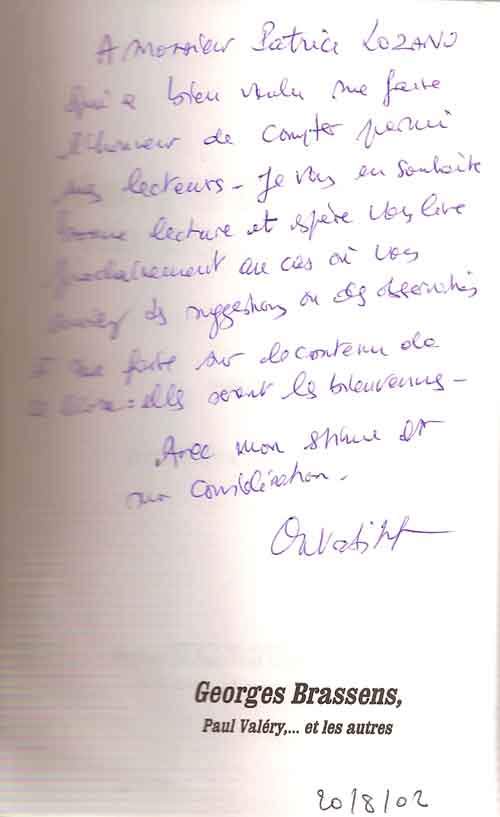 A Monsieur Patrice LOZANO
qui a bien voulu me faire
l'honneur de compter parmi
mes lecteurs - Je vous en souhaite
bonne lecture et espère vous lire
prochainement au cas où vous
auriez des suggestions ou des observations
à me faire sur le contenu de
ce livre : elles seront les bienvenues -
Avec mon estime et
ma considération.
Georges Brassens,
Paul Valéry,... et les autres
20/8/02